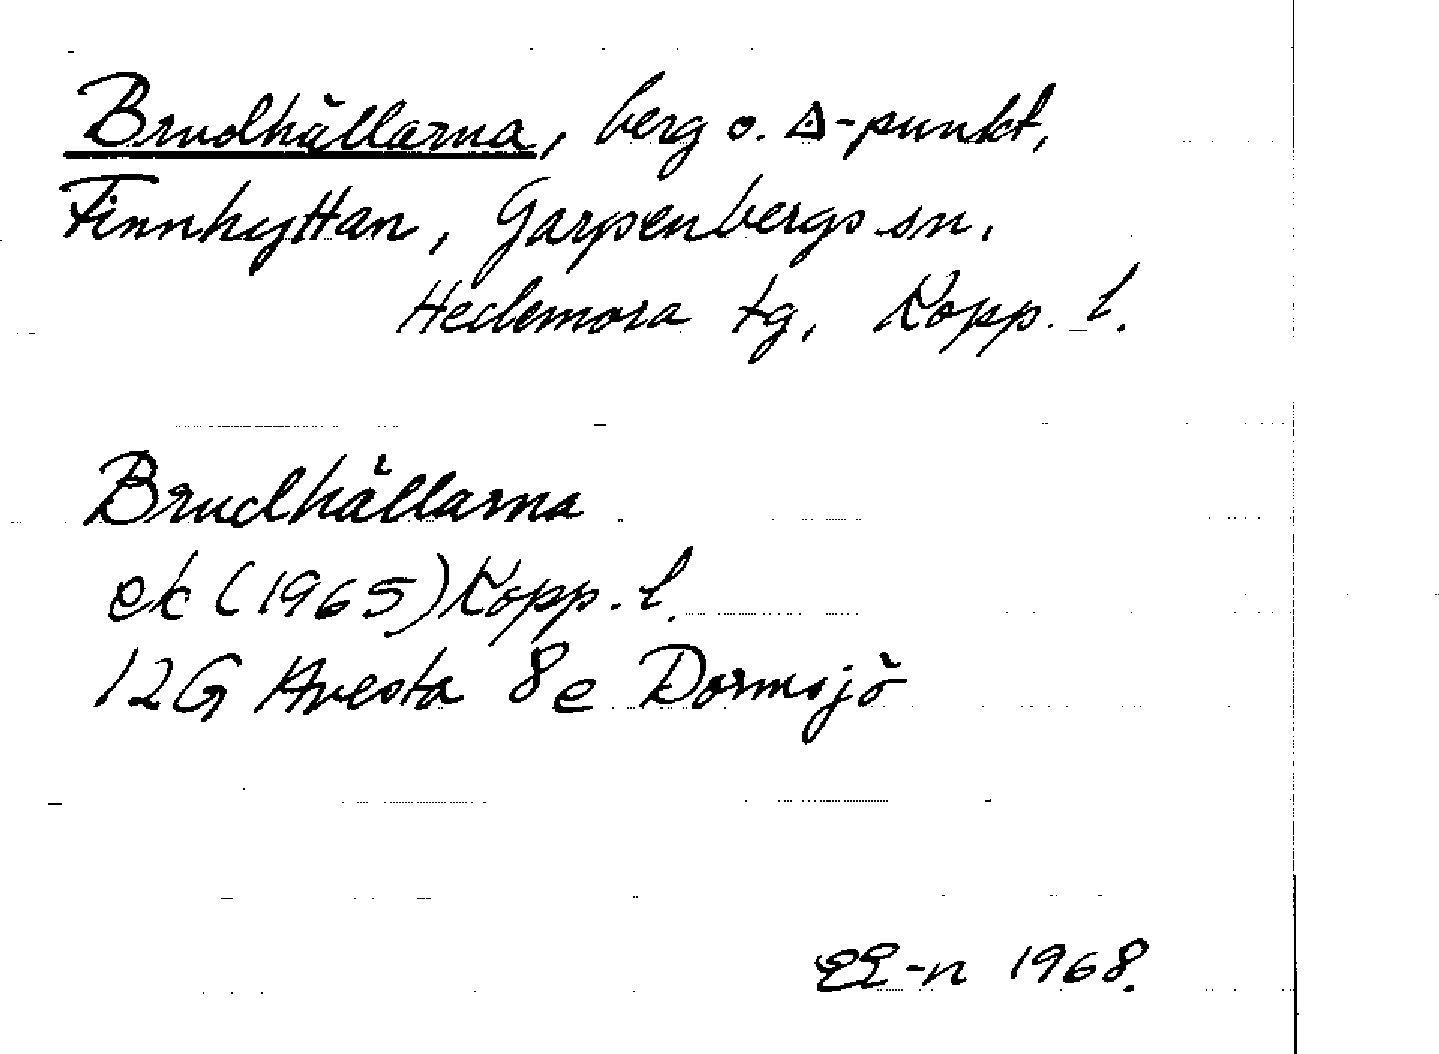 Brudhällarna, berg o. ∆-punkt,
Finnhyttan, Garpenbergs sn,
Hedemora tg, Kopp. l.
Brudhällarna
ek (1965) Kopp. l.
12G Avesta 8e Dormsjö
EE-n 1968.